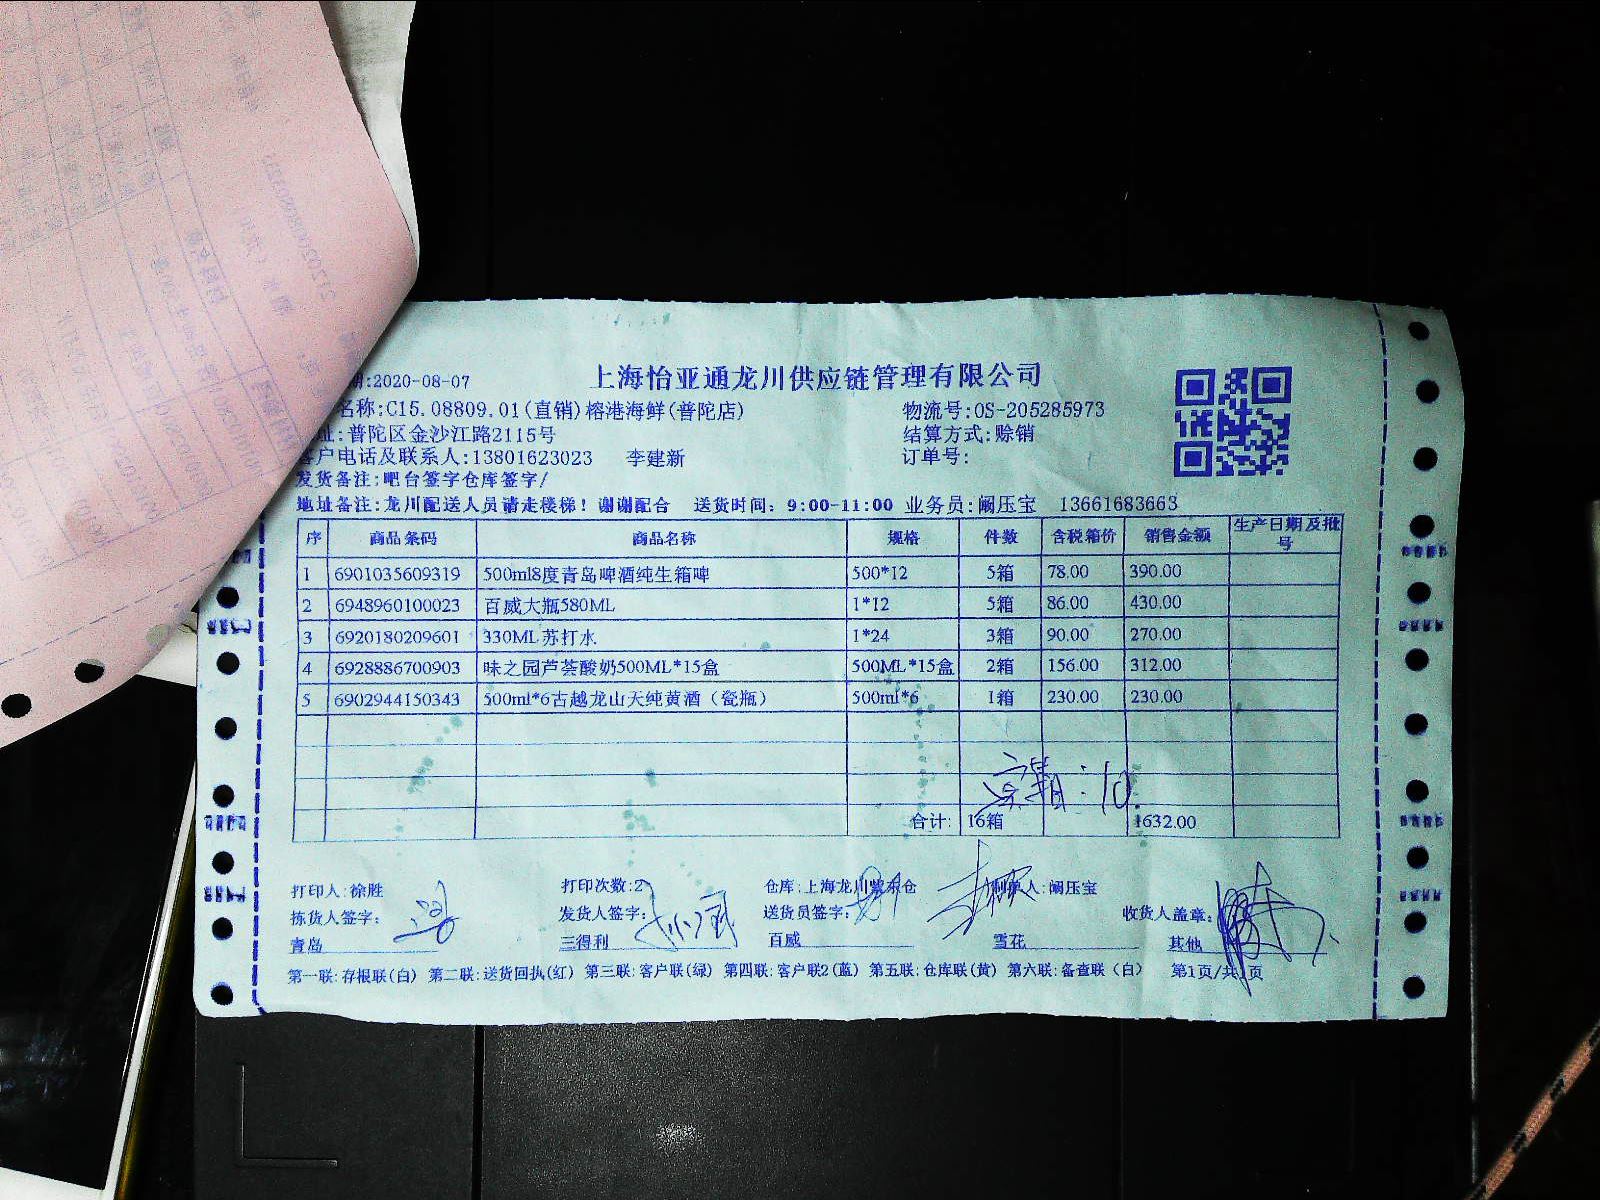 上海怡亚通龙川供应链管理有限公司
:2020-08-07
名称:C15.08809.01(直销)榕港海鲜(普陀店) 物流号:OS-205285973
址:普陀区金沙江路2115号 结算方式:赊销
客户电话及联系人:13801623023 李建新 订单号:
发货备注:吧台签字仓库签字/
地址备注:龙川配送人员请走楼梯！谢谢配合 送货时间：9:00-11:00 业务员:阚压宝 13661683663
序 商品条码 商品名称 规格 件数 含税箱价 销售金额 生产日期及批号
1 6901035609319 500ml8度青岛啤酒纯生箱啤 500*12 5箱 78.00 390.00
2 6948960100023 百威大瓶580ML 1*12 5箱 86.00 430.00
3 6920180209601 330ML苏打水 1*24 3箱 90.00 270.00
4 6928886700903 味之园芦荟酸奶500ML*15盒 500ML*15盒 2箱 156.00 312.00
5 6902944150343 500ml*6古越龙山天纯黄酒（瓷瓶） 500ml*6 1箱 230.00 230.00
:10
合计: 16箱 1632.00
打印人:徐胜 打印次数:2 仓库:上海龙川 仓 制单人:阚压宝
拣货人签字： 发货人签字： 送货员签字： 收货人盖章：
青岛 三得利 百威 雪花 其他
第一联:存根联(白) 第二联:送货回执(红) 第三联:客户联(绿) 第四联:客户联2(蓝) 第五联:仓库联(黄) 第六联:备查联（白） 第1页/共1页